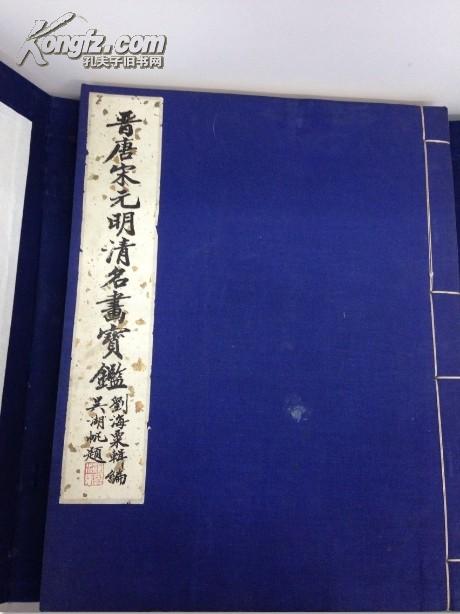 Kongfz.com
孔夫子旧书网
晋唐宋元明清名畫寶鑑
劉海粟輯編
吴湖帆題